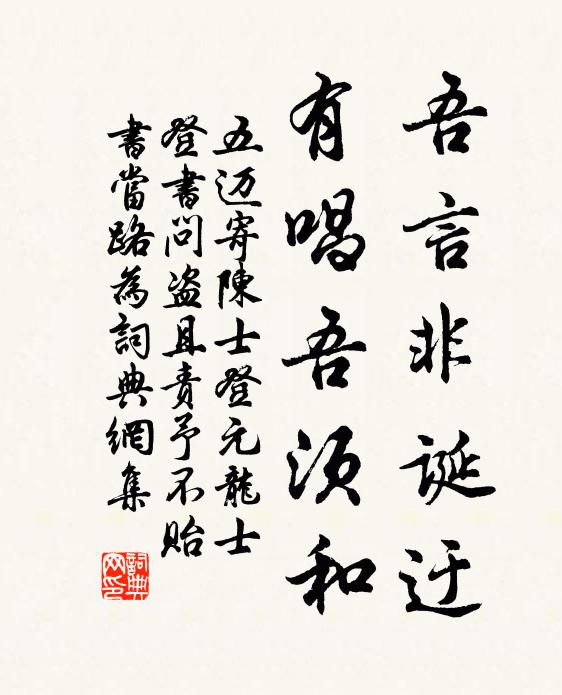 吾言非誕迂
有唱吾須和
五迈寄陳士登元龍士
登書問盗且責予不貽
書當路為詞典網集
詞典网印